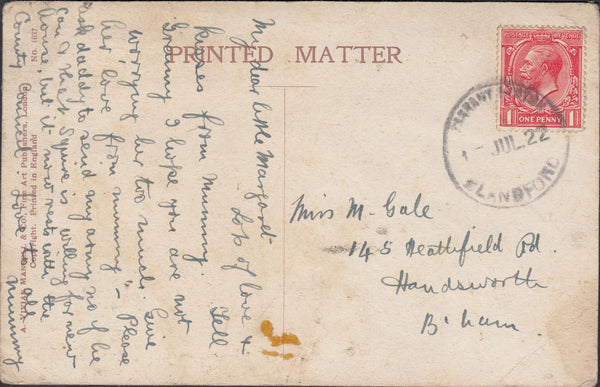 PRINTED MATTER
My dear little Margaret
Lots of love &
kisses from Mummy. Tell
Granny I hope you are not
worrying her too much. Give
her love from mummy - Please
ask daddy to send my army no if he
can & that Squire is willing for new
house, but it now rests with the
County Council. Love
Mummy
A. VIVIAN MANSELL & Co., Fine Art Publishers, London
Copyright. Printed in England
No. 1037
ONE PENNY
1 JUL 22
BLANDFORD
Miss M. Gale
145 Heathfield Rd.
Handsworth
B'ham